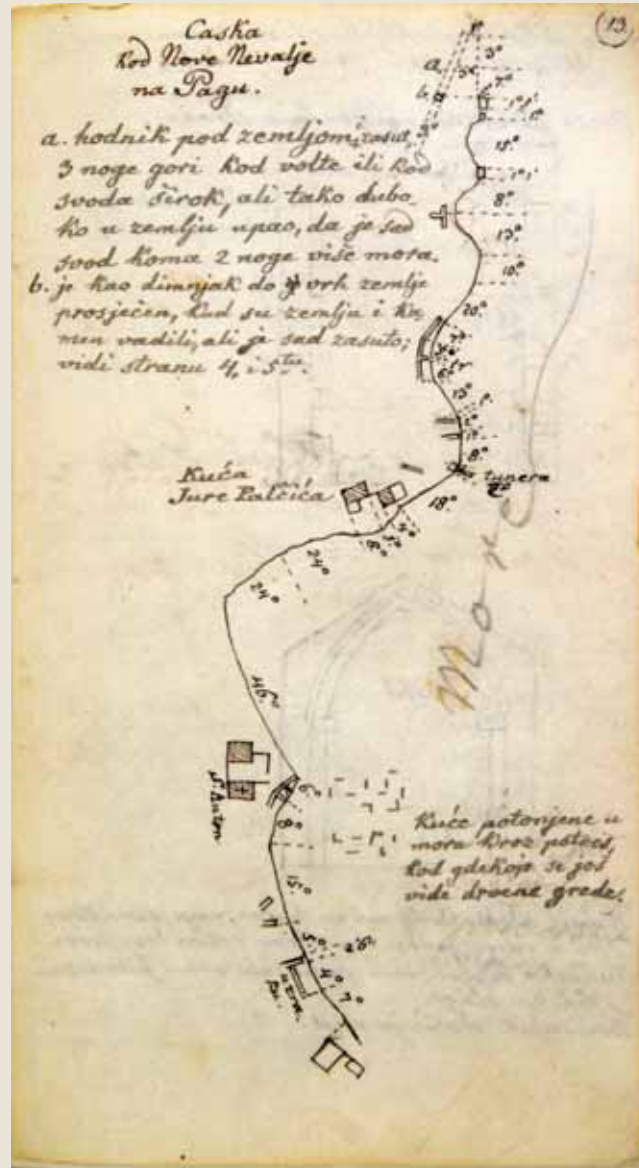 13
Caska
kod Nove Nevalje
na Pagu.
a. hodnik pod zemljom, zasut,
3 noge gori kod volte ili kod
svoda širok, ali tako dubo
ko u zemlju upao, da je sad
svod koma 2 noge više mora.
b. je kao dimnjak do vrh zemlje
prosječen, kud su zemlju i ka
men vadili, ali je sad zasuto;
vidi stranu 4, i 5tu.
a
b
3°
7°
3°
1°1'
15°
1°1'
8°
13°
10°
20°
13°
8°
tunera
18°
Kuća
Jure Palčića
5°
8°
24°
24°
More
46°
S. Anton
6°
8°
Kuće potonjene u
moru kroz potres,
kod gdekoje se još
vide drvene grede.
15°
5°
2°
4°
7°